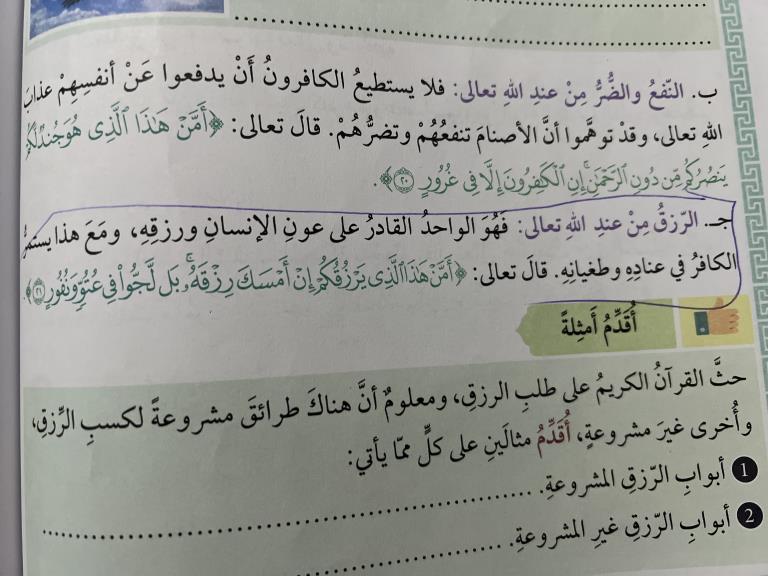 ب. النّفعُ والضُّرُّ مِنْ عندِ اللهِ تعالى: فلا يستطيعُ الكافرونُ أَنْ يدفعوا عَنْ أنفسِهِمْ عذابَ
اللهِ تعالى، وقدْ توهَّموا أنَّ الأصنامَ تنفعُهُمْ وتضرُّهُمْ. قالَ تعالى: ﴿أَمَّنْ هَٰذَا ٱلَّذِى هُوَ جُندٌ لَّكُمْ
يَنصُرُكُم مِّن دُونِ ٱلرَّحْمَٰنِ ۚ إِنِ ٱلْكَٰفِرُونَ إِلَّا فِى غُرُورٍ ٢٠﴾.
جـ. الرّزقُ مِنْ عندِ اللهِ تعالى: فَهُوَ الواحدُ القادرُ على عونِ الإنسانِ ورزقِهِ، ومَعَ هذا يستمرُّ
الكافرُ في عنادِهِ وطغيانِهِ. قالَ تعالى: ﴿أَمَّنْ هَٰذَا ٱلَّذِى يَرْزُقُكُمْ إِنْ أَمْسَكَ رِزْقَهُۥ ۚ بَل لَّجُّوا۟ فِى عُتُوٍّ وَنُفُورٍ ٢١﴾.
أُقَدِّمُ أَمثِلةً
حثَّ القرآنُ الكريمُ على طلبِ الرزقِ، ومعلومٌ أنَّ هناكَ طرائقَ مشروعةً لكسبِ الرِّزقِ،
وأُخرى غيرَ مشروعةٍ، أُقدِّمُ مثالَينِ على كلٍّ ممّا يأتي:
1 أبوابِ الرّزقِ المشروعةِ.
2 أبوابِ الرّزقِ غيرِ المشروعةِ.